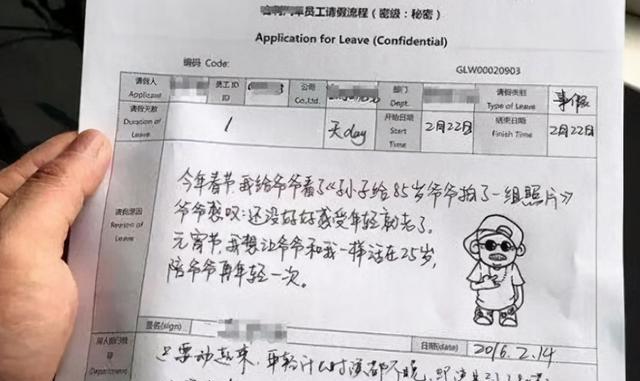 汽车员工请假流程（密级：秘密）
Application for Leave (Confidential)
编码 Code: GLW00020903
请假人 Applicant 员工ID ID 公司 Co.,Ltd. 部门 Dept. 请假类别 Type of Leave 事假
请假天数 Duration of Leave 1 天day 开始日期 Start Time 2月22日 结束日期 Finish Time 2月22日
请假原因 Reason of Leave
今年春节我给爷爷看了《孙子给85岁爷爷拍了一组照片》
爷爷感叹：还没好好感受年轻就老了。
元宵节，我想让爷爷和我一样活在25岁，
陪爷爷再年轻一次。
签名(sign) 日期(date) 2016.2.14
Departments
要动起来，再轻什么时候都不晚，